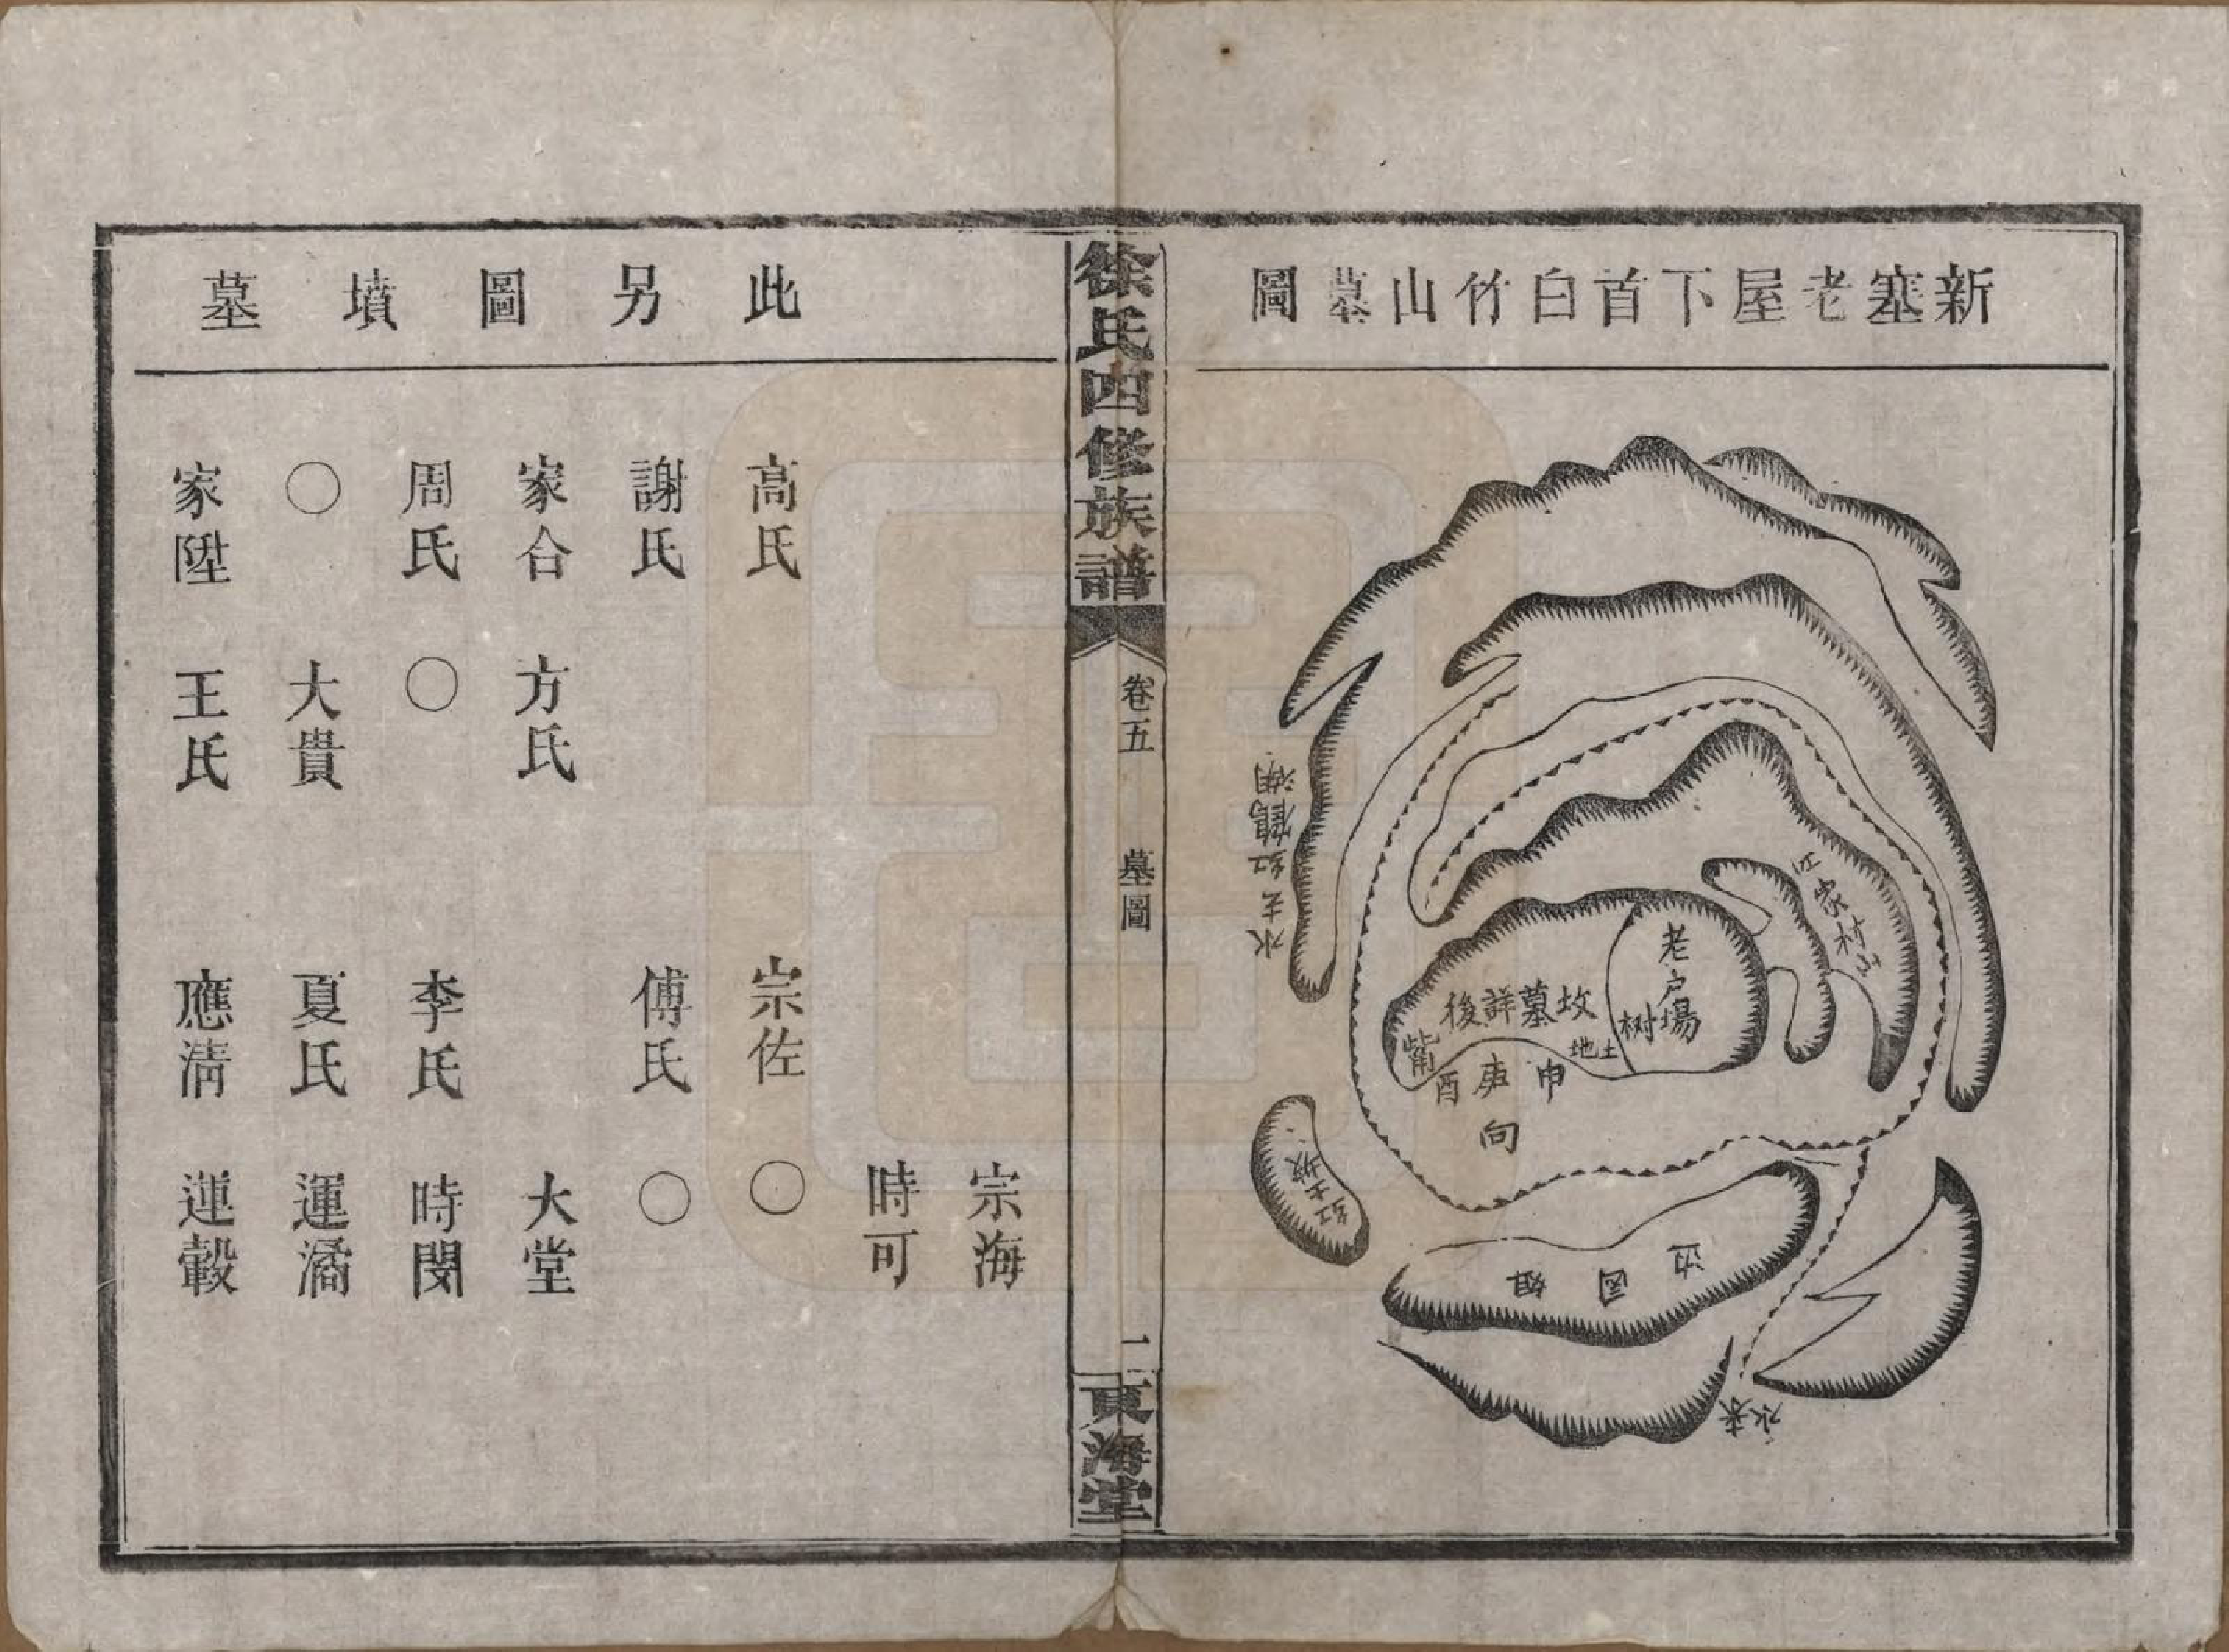 新塞老屋下首白竹山墓圖
江家村山
老户場
树
坟墓詳後
土地
嘴
申庚酉
向
水去紅鶴湖
紅土坡
边园
水来
徐氏四修族譜
卷五
墓圖
二
東海堂
此另圖墳墓
宗海
時可
高氏
宗佐
〇
謝氏
傅氏
〇
家合
方氏
大堂
周氏
〇
李氏
時閔
〇
大貴
夏氏
運潏
家陞
王氏
應清
運轂